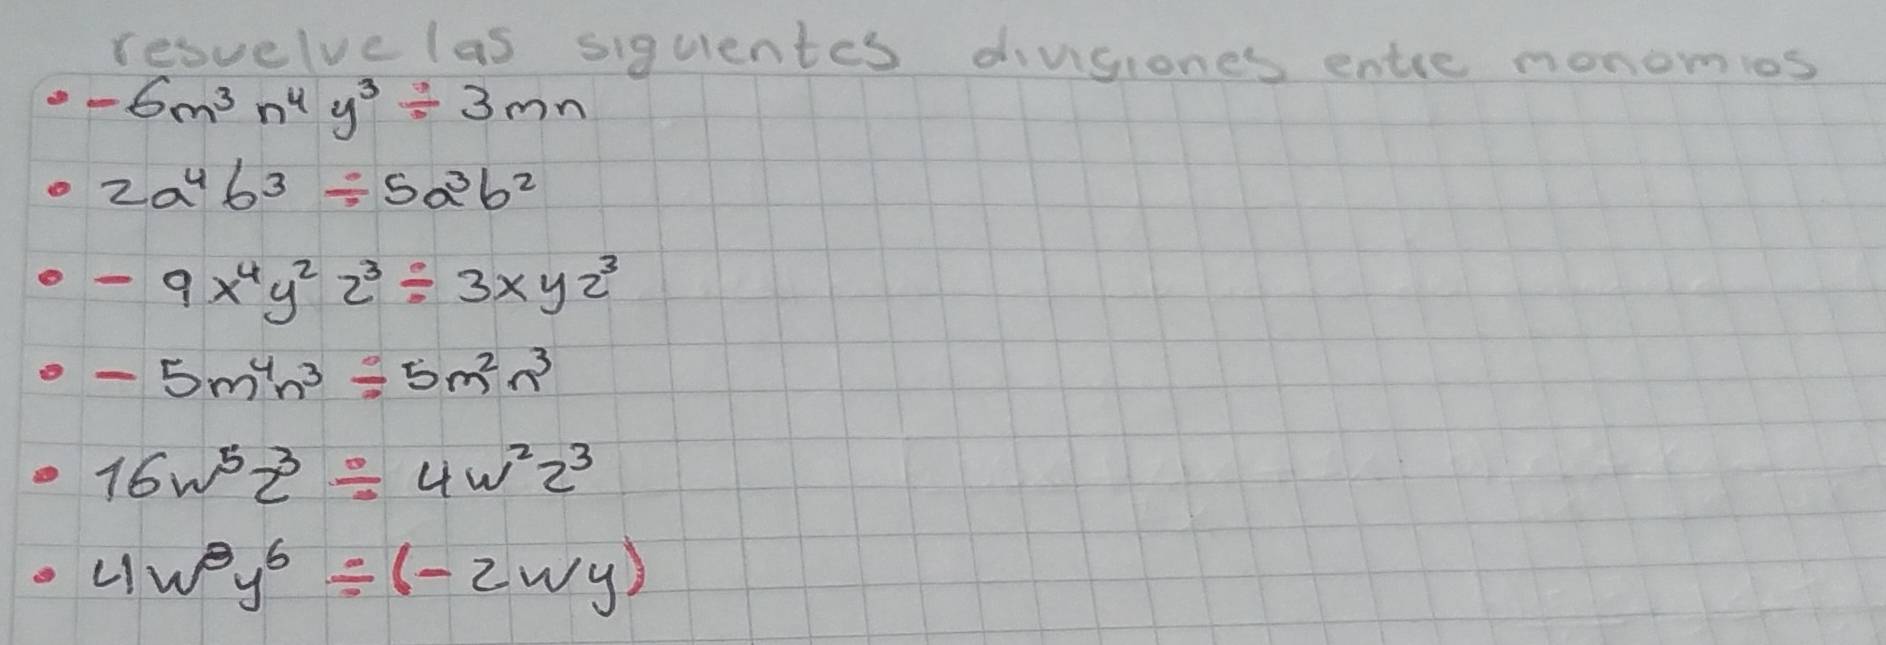 resuelve las siguientes divisiones entre monomios
• - 6m³ n⁴ y³ ÷ 3mn
• 2a⁴b³ ÷ 5a³b²
• - 9x⁴y² z³ ÷ 3xyz³
• - 5m⁴n³ ÷ 5m²n³
• 16w⁵z³ ÷ 4w²z³
• 4w⁸y⁶ ÷ (-2wy)